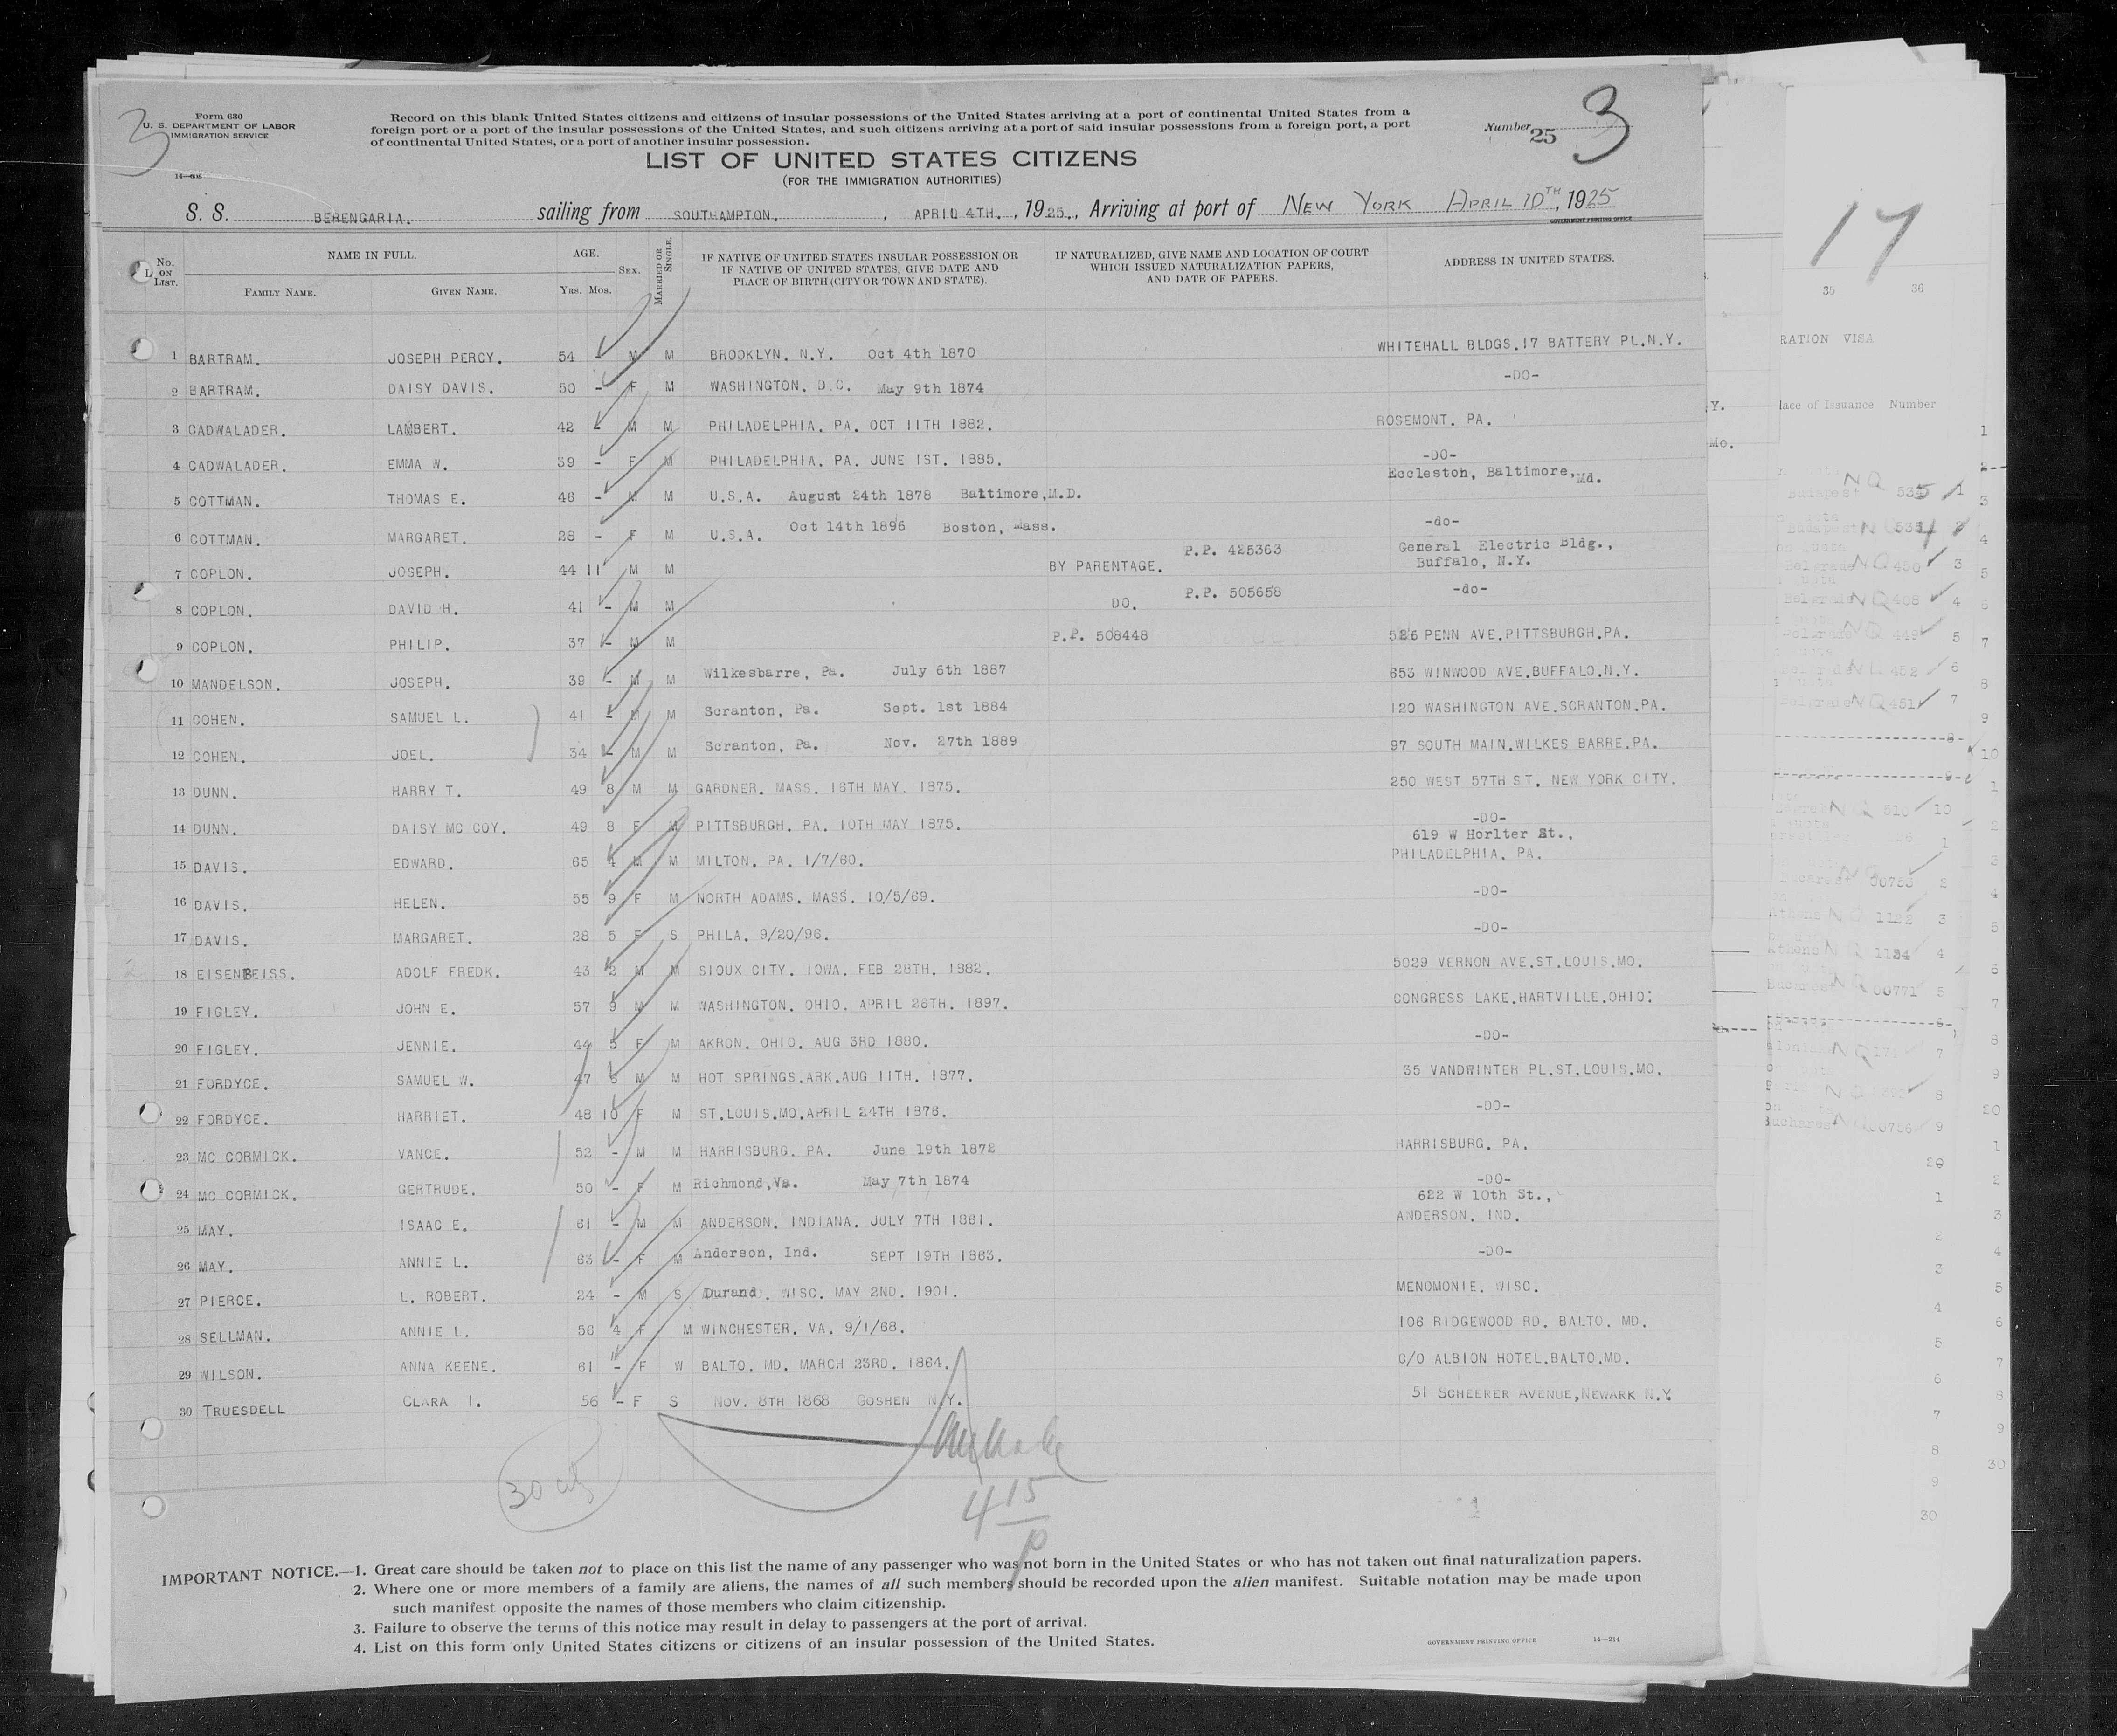 Form 630
U. S. DEPARTMENT OF LABOR
IMMIGRATION SERVICE
3
Record on this blank United States citizens and citizens of insular possessions of the United States arriving at a port of continental United States from a
foreign port or a port of the insular possessions of the United States, and such citizens arriving at a port of said insular possessions from a foreign port, a port
of continental United States, or a port of another insular possession.
Number 25
3
LIST OF UNITED STATES CITIZENS
(FOR THE IMMIGRATION AUTHORITIES)
S. S. BERENGARIA. sailing from SOUTHAMPTON. , APRIL 4TH. , 1925., Arriving at port of NEW YORK APRIL 10TH, 1925
GOVERNMENT PRINTING OFFICE
No. ON LIST. NAME IN FULL. FAMILY NAME. GIVEN NAME. AGE. Yrs. Mos. SEX. MARRIED OR SINGLE. IF NATIVE OF UNITED STATES INSULAR POSSESSION OR IF NATIVE OF UNITED STATES, GIVE DATE AND PLACE OF BIRTH (CITY OR TOWN AND STATE). IF NATURALIZED, GIVE NAME AND LOCATION OF COURT WHICH ISSUED NATURALIZATION PAPERS, AND DATE OF PAPERS. ADDRESS IN UNITED STATES.
1 BARTRAM. JOSEPH PERCY. 54 - M M BROOKLYN. N.Y. Oct 4th 1870 WHITEHALL BLDGS.17 BATTERY PL.N.Y.
2 BARTRAM. DAISY DAVIS. 50 - F M WASHINGTON. D.C. May 9th 1874 -DO-
3 CADWALADER. LAMBERT. 42 - M M PHILADELPHIA. PA. OCT 11TH 1882. ROSEMONT. PA.
4 CADWALADER. EMMA W. 39 - F M PHILADELPHIA. PA. JUNE 1ST. 1885. -DO-
5 COTTMAN. THOMAS E. 46 - M M U.S.A. August 24th 1878 Baltimore,M.D. Eccleston, Baltimore,Md.
6 COTTMAN. MARGARET. 28 - F M U.S.A. Oct 14th 1896 Boston, Mass. -do-
7 COPLON. JOSEPH. 44 11 M M BY PARENTAGE. P.P. 425363 General Electric Bldg., Buffalo, N.Y.
8 COPLON. DAVID H. 41 - M M DO. P.P. 505658 -do-
9 COPLON. PHILIP. 37 - M M P.P. 508448 526 PENN AVE.PITTSBURGH.PA.
10 MANDELSON. JOSEPH. 39 - M M Wilkesbarre, Pa. July 6th 1887 653 WINWOOD AVE.BUFFALO.N.Y.
11 COHEN. SAMUEL L. 41 - M M Scranton, Pa. Sept. 1st 1884 120 WASHINGTON AVE.SCRANTON.PA.
12 COHEN. JOEL. 34 - M M Scranton, Pa. Nov. 27th 1889 97 SOUTH MAIN.WILKES BARRE.PA.
13 DUNN. HARRY T. 49 8 M M GARDNER. MASS. 18TH MAY. 1875. 250 WEST 57TH ST. NEW YORK CITY.
14 DUNN. DAISY MC COY. 49 8 F M PITTSBURGH. PA. 10TH MAY 1875. -DO-
15 DAVIS. EDWARD. 65 4 M M MILTON. PA. 1/7/60. 619 W Horlter St., PHILADELPHIA. PA.
16 DAVIS. HELEN. 55 9 F M NORTH ADAMS. MASS. 10/5/69. -DO-
17 DAVIS. MARGARET. 28 5 F S PHILA. 9/20/96. -DO-
18 EISENBEISS. ADOLF FREDK. 43 2 M M SIOUX CITY. IOWA. FEB 28TH. 1882. 5029 VERNON AVE.ST.LOUIS.MO.
19 FIGLEY. JOHN E. 57 9 M M WASHINGTON. OHIO. APRIL 26TH. 1897. CONGRESS LAKE.HARTVILLE.OHIO:
20 FIGLEY. JENNIE. 44 5 F M AKRON. OHIO. AUG 3RD 1880. -DO-
21 FORDYCE. SAMUEL W. 47 6 M M HOT SPRINGS.ARK.AUG 11TH. 1877. 35 VANDWINTER PL.ST.LOUIS.MO.
22 FORDYCE. HARRIET. 48 10 F M ST.LOUIS.MO.APRIL 24TH 1876. -DO-
23 MC CORMICK. VANCE. 52 - M M HARRISBURG. PA. June 19th 1872 HARRISBURG. PA.
24 MC CORMICK. GERTRUDE. 50 - F M Richmond,Va. May 7th 1874 -DO-
25 MAY. ISAAC E. 61 - M M ANDERSON. INDIANA. JULY 7TH 1861. 622 W 10th St., ANDERSON. IND.
26 MAY. ANNIE L. 63 - F M Anderson, Ind. SEPT 19TH 1863. -DO-
27 PIERCE. L. ROBERT. 24 - M S Durand. WISC. MAY 2ND. 1901. MENOMONIE. WISC.
28 SELLMAN. ANNIE L. 56 4 F M WINCHESTER. VA. 9/1/68. 106 RIDGEWOOD RD. BALTO. MD.
29 WILSON. ANNA KEENE. 61 - F W BALTO. MD. MARCH 23RD. 1864. C/O ALBION HOTEL.BALTO.MD.
30 TRUESDELL CLARA I. 56 - F S NOV. 8TH 1868 GOSHEN N.Y. 51 SCHEERER AVENUE,NEWARK N.Y
4 15
p
IMPORTANT NOTICE.—1. Great care should be taken not to place on this list the name of any passenger who was not born in the United States or who has not taken out final naturalization papers.
2. Where one or more members of a family are aliens, the names of all such members should be recorded upon the alien manifest. Suitable notation may be made upon
such manifest opposite the names of those members who claim citizenship.
3. Failure to observe the terms of this notice may result in delay to passengers at the port of arrival.
4. List on this form only United States citizens or citizens of an insular possession of the United States.
GOVERNMENT PRINTING OFFICE 14—214
17
35 36
RATION VISA
lace of Issuance Number